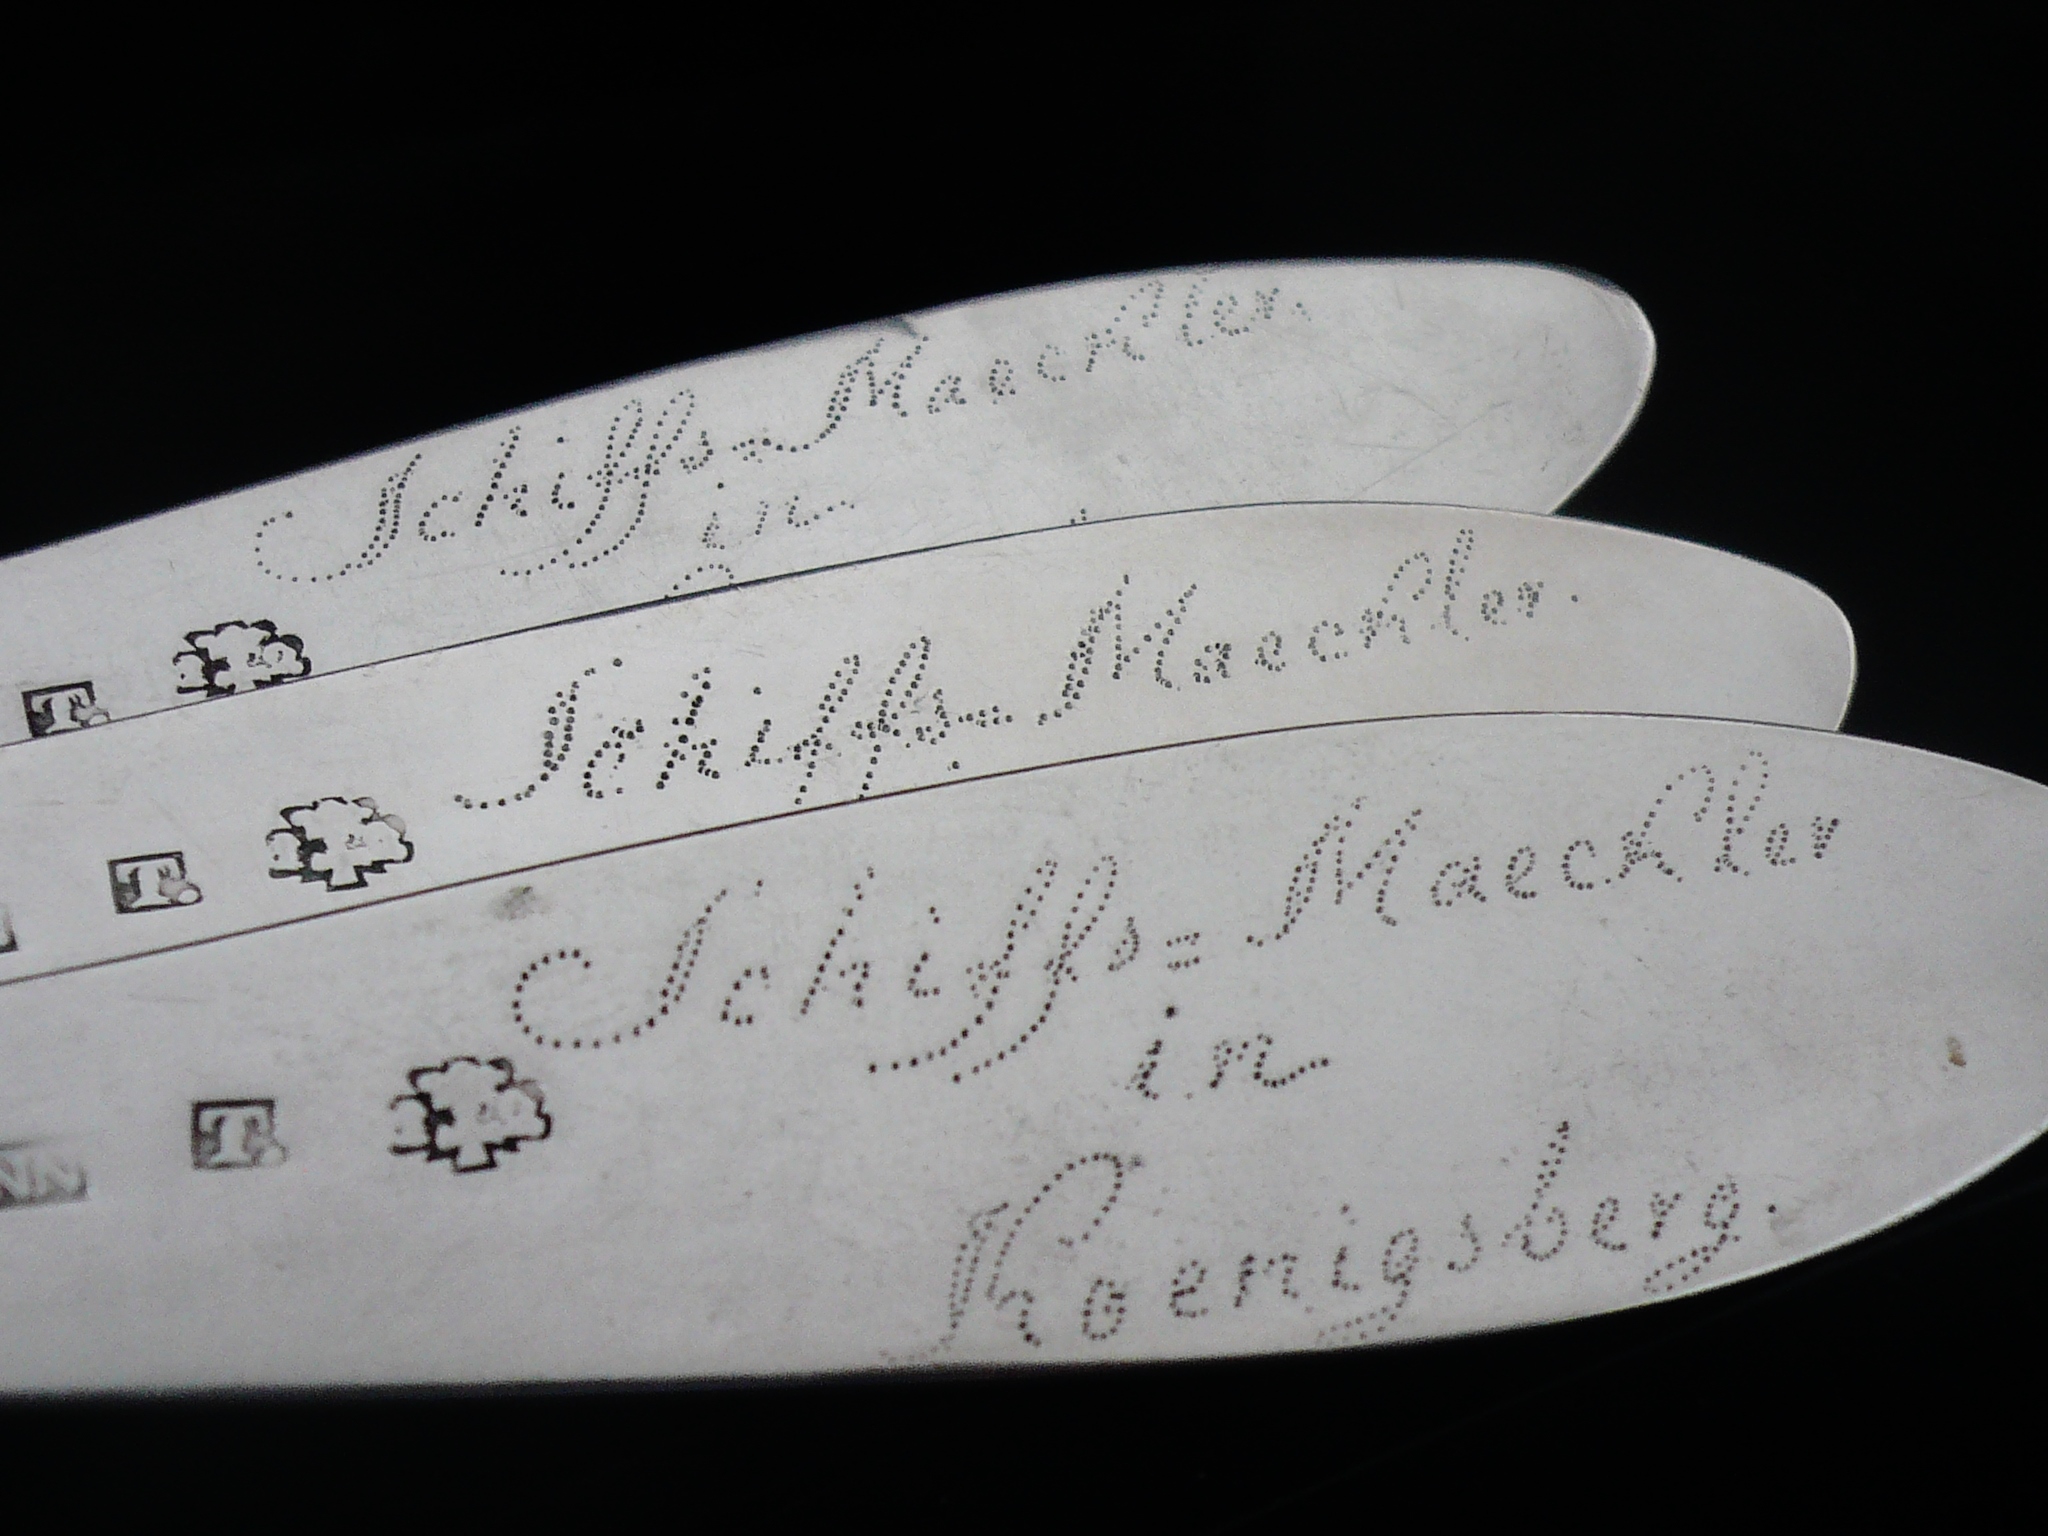 Schiffs=Maeckler.
in
T
Schiffs=Maeckler.
T
Schiffs=Maeckler
in
Koenigsberg.
T
NN